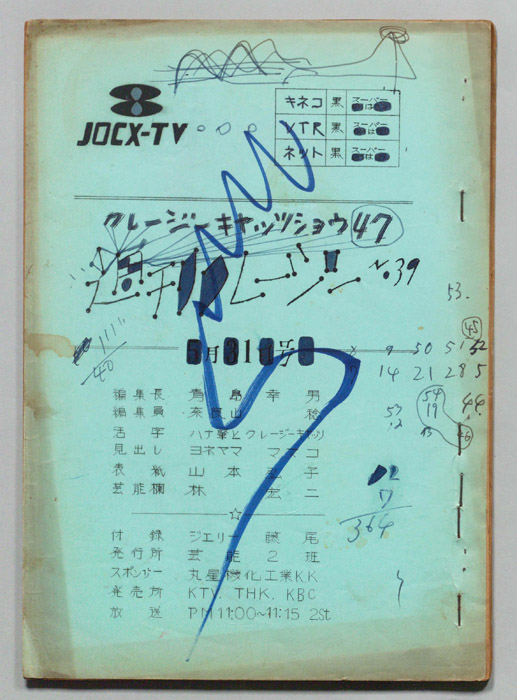 JOCX-TV
キネコ 黒 スーパーは
VTR 黒 スーパーは
ネット 黒 スーパーは
クレージーキャッツショウ 47
週刊クレージー No.39
5月31日号
編集長 青島幸男
編集員 奈良山 稔
活字 ハナ肇とクレージーキャッツ
見出し ヨネヤママコ
表紙 山本 子
芸能欄 林 宏二
☆
付録 ジェリー藤尾
発行所 芸能2班
スポンサー 丸星 化工業KK
発売所 KTV, THK, KBC
放送 PM11:00~11:15 2st
53.
45
9 50 51 52
14 21 28 5
40
54
19
44
53
12
13
46
7
364